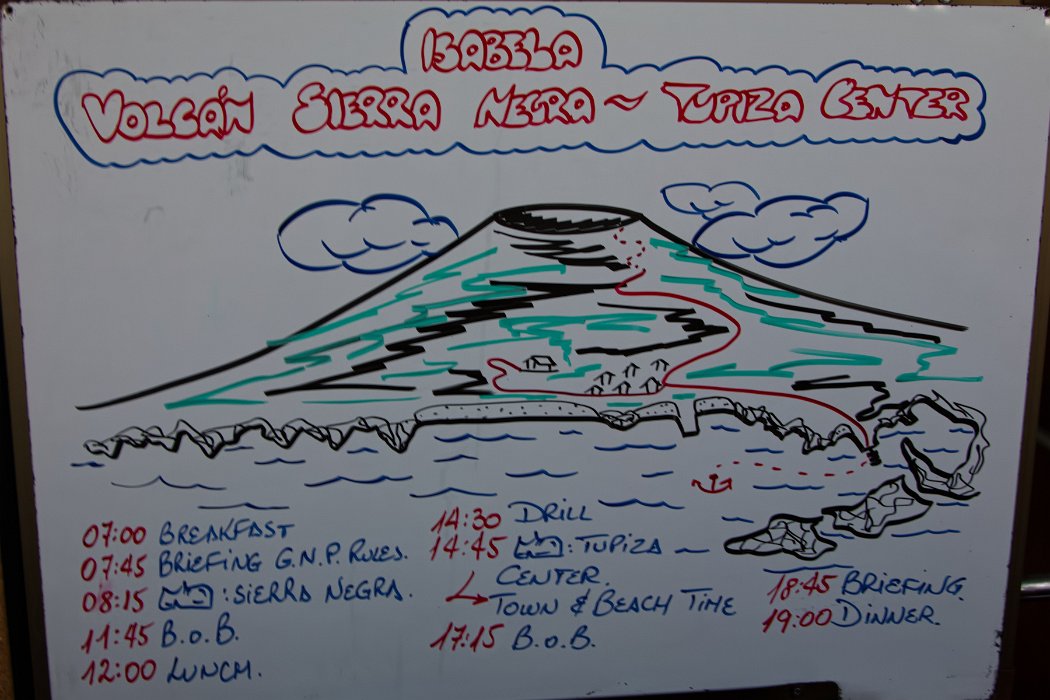 ISABELA
VOLCÁN SIERRA NEGRA ~ TUPIZA CENTER
07:00 BREAKFAST
07:45 BRIEFING G.N.P. RULES.
08:15 : SIERRA NEGRA.
11:45 B.O.B.
12:00 LUNCH.
14:30 DRILL
14:45 : TUPIZA ~
CENTER.
TOWN & BEACH TIME
17:15 B.O.B.
18:45 BRIEFING.
19:00 DINNER.